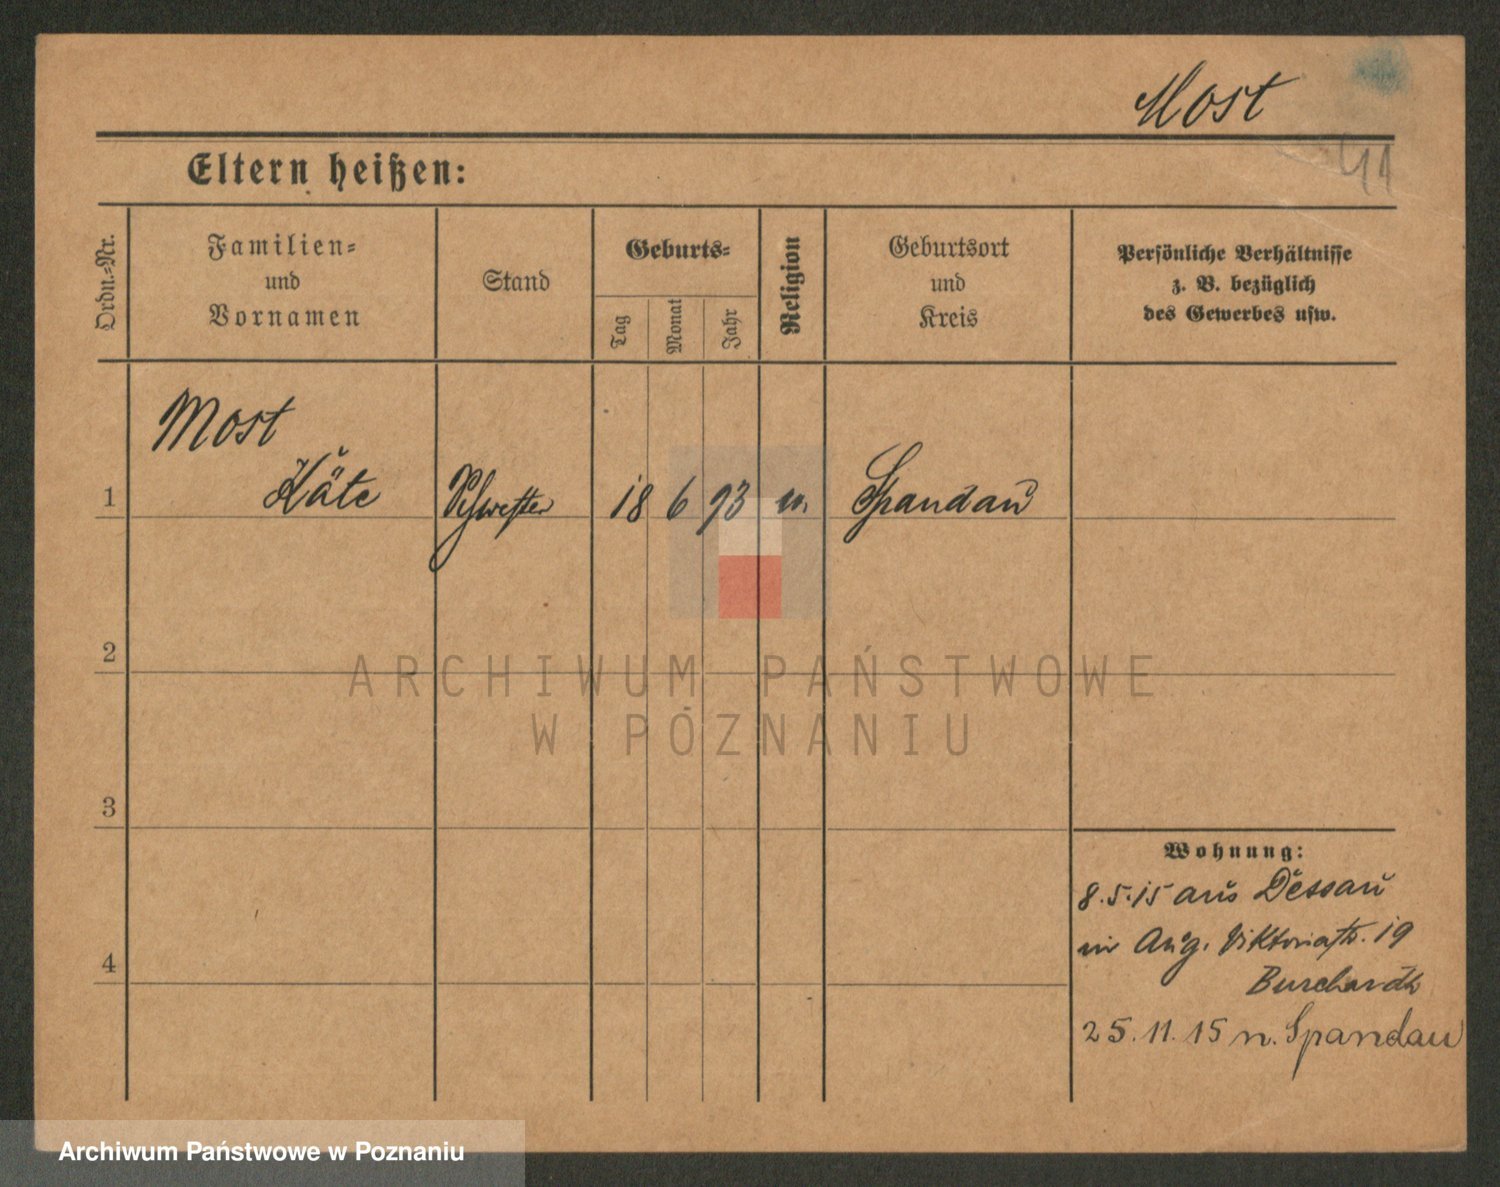 Most
41
Eltern heißen:
Ordn.-Nr.
Familien-
und
Vornamen
Stand
Geburts-
Tag
Monat
Jahr
Religion
Geburtsort
und
Kreis
Persönliche Verhältnisse
z. B. bezüglich
des Gewerbes usw.
Most
1 Käte Schwester 18 6 93 Spandau
2
3
4
Wohnung:
8.5.15 aus Dessau
Aug. Viktoriastr. 19
Burchardt
25.11.15 n. Spandau
ARCHIWUM PAŃSTWOWE
W POZNANIU
Archiwum Państwowe w Poznaniu